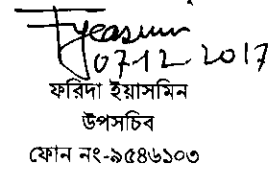 07-12-2017
ফরিদা ইয়াসমিন
উপসচিব
ফোন নং-৯৫৪৬১০৩